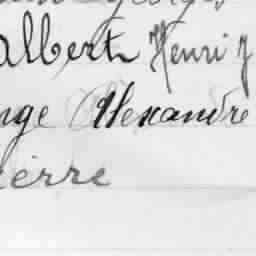 albert Henri J
nge Alexandre
ierre